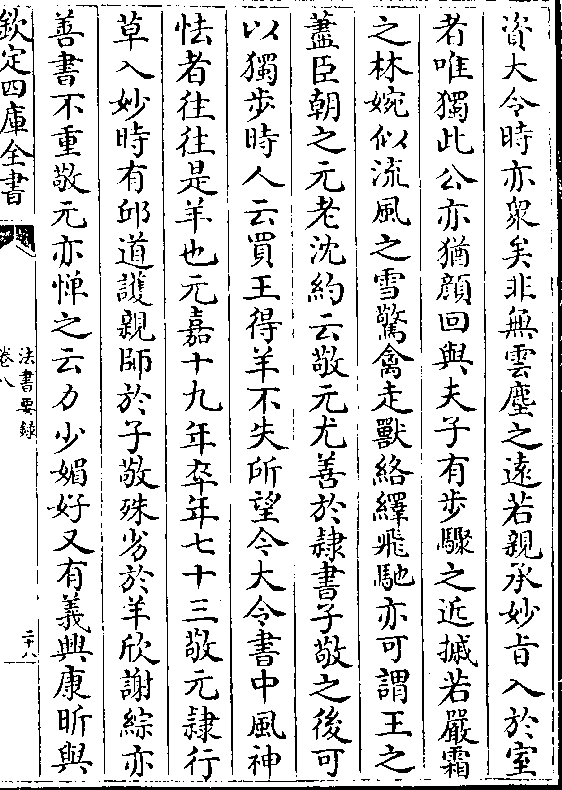 資大令時亦衆矣非無雲塵之遠若親承妙旨入於室
者唯獨此公亦猶顔回與夫子有步驟之近摵若嚴霜
之林婉似流風之雪驚禽走獸絡繹飛馳亦可謂王之
藎臣朝之元老沈約云敬元尤善於隷書子敬之後可
以獨步時人云買王得羊不失所望今大令書中風神
怯者往往是羊也元嘉十九年卒年七十三敬元隷行
草入妙時有邱道護親師於子敬殊劣於羊欣謝綜亦
善書不重敬元亦憚之云力少媚好又有義興康昕與
欽定四庫全書
法書要錄
卷八
二十八